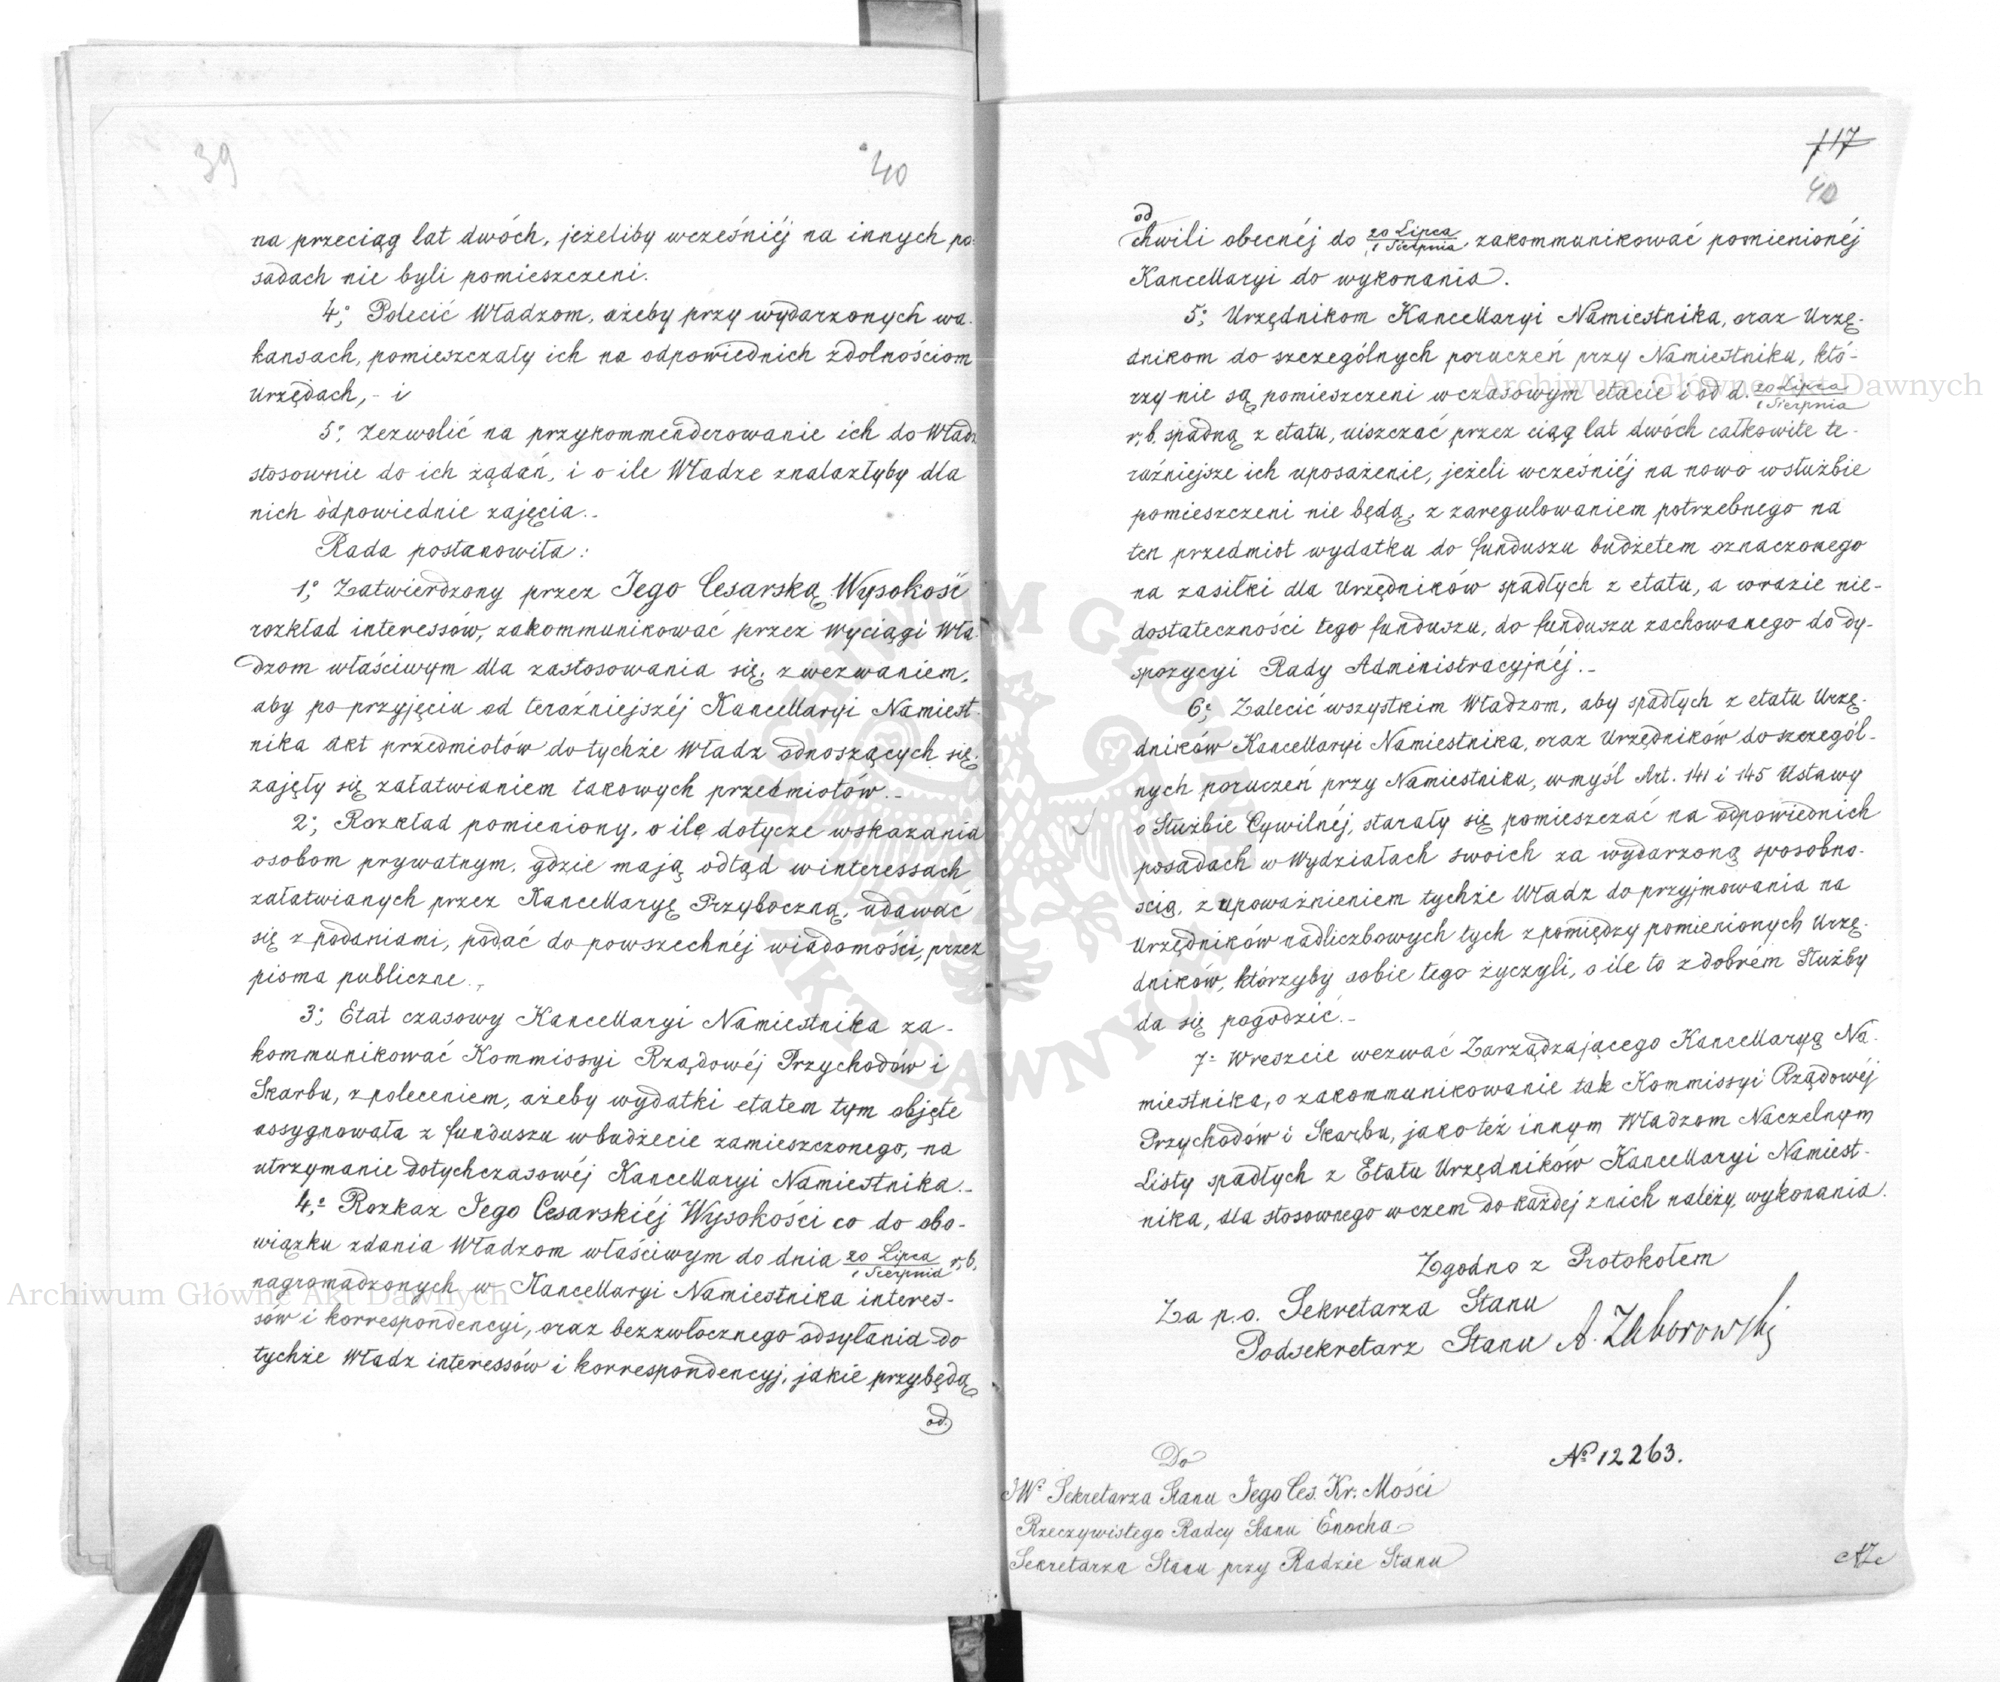 39
40
na przeciąg lat dwóch, jeżeliby wcześniéj na innych po-
sadach nie byli pomieszczeni.
4°, Polecić Władzom, ażeby przy wydarzonych wa-
kansach, pomieszczały ich na odpowiednich zdolnościom
Urzędach, - i
5°, Zezwolić na przykommenderowanie ich do Władz
stosownie do ich żądań, i o ile Władze znalazłyby dla
nich odpowiednie zajęcia.-
Rada postanowiła:
1°, Zatwierdzony przez Jego Cesarską Wysokość
rozkład interessów, zakommunikować przez Wyciągi Wła-
dzom właściwym dla zastosowania się, z wezwaniem,
aby po przyjęciu od teraźniejszéj Kancellaryi Namiest-
nika Akt przedmiotów do tychże Władz odnoszących się,
zajęły się załatwianiem takowych przedmiotów.-
2°, Rozkład pomieniony, o ile dotycze wskazania
osobom prywatnym, gdzie mają odtąd w interessach
załatwianych przez Kancellaryę Przyboczną, udawać
się z podaniami, podać do powszechnéj wiadomości, przez
pisma publiczne.-
3°, Etat czasowy Kancellaryi Namiestnika za-
kommunikować Kommissyi Rządowéj Przychodów i
Skarbu, z poleceniem, ażeby wydatki etatem tym objęte
assygnowała z funduszu w budżecie zamieszczonego, na
utrzymanie dotychczasowéj Kancellaryi Namiestnika.-
4°, Rozkaz Jego Cesarskiéj Wysokości co do obo-
wiązku zdania Władzom właściwym do dnia 20 Lipca / 1 Sierpnia r. b.
nagromadzonych w Kancellaryi Namiestnika interes-
sów i korrespondencyi, oraz bezzwłocznego odsyłania do
tychże Władz interessów i korrespondencyj, jakie przybędą
od
117
40
od
chwili obecnéj do 20 Lipca / 1 Sierpnia, zakommunikować pomienionéj
Kancellaryi do wykonania.
5°, Urzędnikom Kancellaryi Namiestnika, oraz Urzę-
dnikom do szczególnych poruczeń przy Namiestniku, któ-
rzy nie są pomieszczeni w czasowym etacie i od d. 20 Lipca / 1 Sierpnia
r. b. spadną z etatu, uiszczać przez ciąg lat dwóch całkowite te-
raźniejsze ich uposażenie, jeżeli wcześniéj na nowo w służbie
pomieszczeni nie będą, z zaregulowaniem potrzebnego na
ten przedmiot wydatku do funduszu budżetem oznaczonego
na zasiłki dla Urzędników spadłych z etatu, a w razie nie-
dostateczności tego funduszu, do funduszu zachowanego do dy-
spozycyi Rady Administracyjnéj.-
6°, Zalecić wszystkim Władzom, aby spadłych z etatu Urzę-
dników Kancellaryi Namiestnika, oraz Urzędników do szczegól-
nych poruczeń przy Namiestniku, w myśl Art. 141 i 145 Ustawy
o Służbie Cywilnéj, starały się pomieszczać na odpowiednich
posadach w Wydziałach swoich za wydarzoną sposobno-
ścią, z upoważnieniem tychże Władz do przyjmowania na
Urzędników nadliczbowych tych z pomiędzy pomienionych Urzę-
dników, którzyby sobie tego życzyli, o ile to z dobrém Służby
da się pogodzić.-
7° Wreszcie wezwać Zarządzającego Kancellaryą Na-
miestnika, o zakommunikowanie tak Kommissyi Rządowéj
Przychodów i Skarbu, jako też innym Władzom Naczelnym
Listy spadłych z Etatu Urzędników Kancellaryi Namiest-
nika, dla stosownego w czem do każdej z nich należy, wykonania.
Zgodno z Protokołem
Za p.o. Sekretarza Stanu
Podsekretarz Stanu A. Zaborowski
N° 12263.
Do
JW° Sekretarza Stanu Jego Ces. Kr. Mości
Rzeczywistego Radcy Stanu Enocha
Sekretarza Stanu przy Radzie Stanu
Archiwum Główne Akt Dawnych
Archiwum Główne Akt Dawnych
ARCHIWUM GŁÓWNE
AKT DAWNYCH